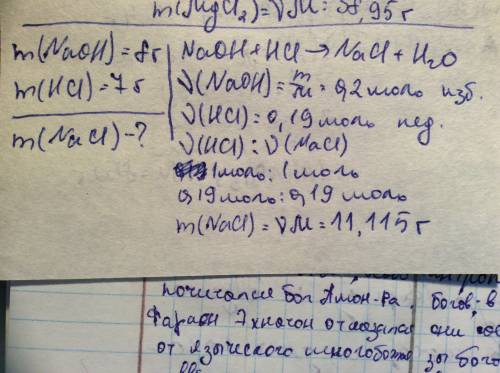 m(MgCl₂)=νM=38,95г
m(NaOH)=8г
m(HCl)=7г
m(NaCl)-?
NaOH+HCl→NaCl+H₂O
ν(NaOH)=m/M=0,2моль изб.
ν(HCl)=0,19моль нед.
ν(HCl):ν(NaCl)
1моль:1моль
0,19моль:0,19моль
m(NaCl)=νM=11,115г
почитался бог Амон-Ра.
Фараон Эхнатон отказался
от языческого многобожия
богов, в
они
зы бого